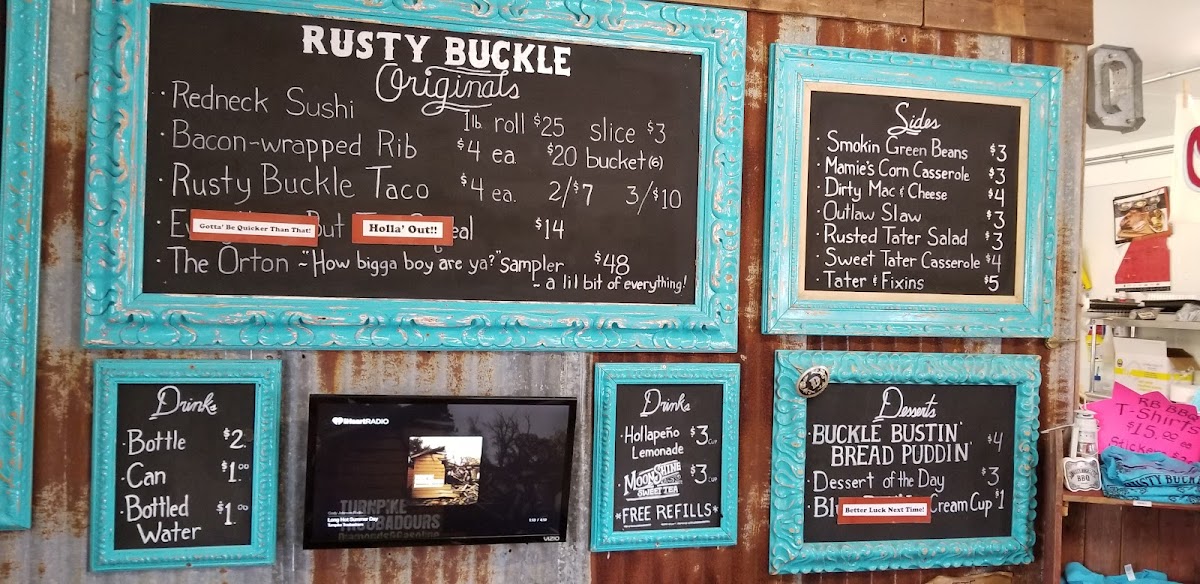 RUSTY BUCKLE
Originals
· Redneck Sushi 1lb roll $25 slice $3
· Bacon-wrapped Rib $4 ea. $20 bucket (6)
· Rusty Buckle Taco $4 ea. 2/$7 3/$10
Gotta' Be Quicker Than That! But Holla' Out!! $14
· The Orton ~ "How bigga boy are ya?" Sampler $48
~ a lil bit of everything!
Sides
· Smokin Green Beans $3
· Mamie's Corn Casserole $3
· Dirty Mac & Cheese $4
· Outlaw Slaw $3
· Rusted Tater Salad $3
· Sweet Tater Casserole $4
· Tater & Fixins $5
Drinks
· Bottle $2.
· Can $1.00
· Bottled $1.00
Water
iHeartRADIO
TURNPIKE
TROUBADOURS
Long Hot Summer Day
Turnpike Troubadours
VIZIO
Drinks
· Hollapeño $3 cup
Lemonade
· MOONSHINE $3 cup
SWEET TEA
*FREE REFILLS*
Desserts
· BUCKLE BUSTIN' $4
BREAD PUDDIN'
· Dessert of the Day $3
· Better Luck Next Time! Cream Cup $1
RB BBQ
T-Shirts
$15.00
BBQ
RUSTY BUCK